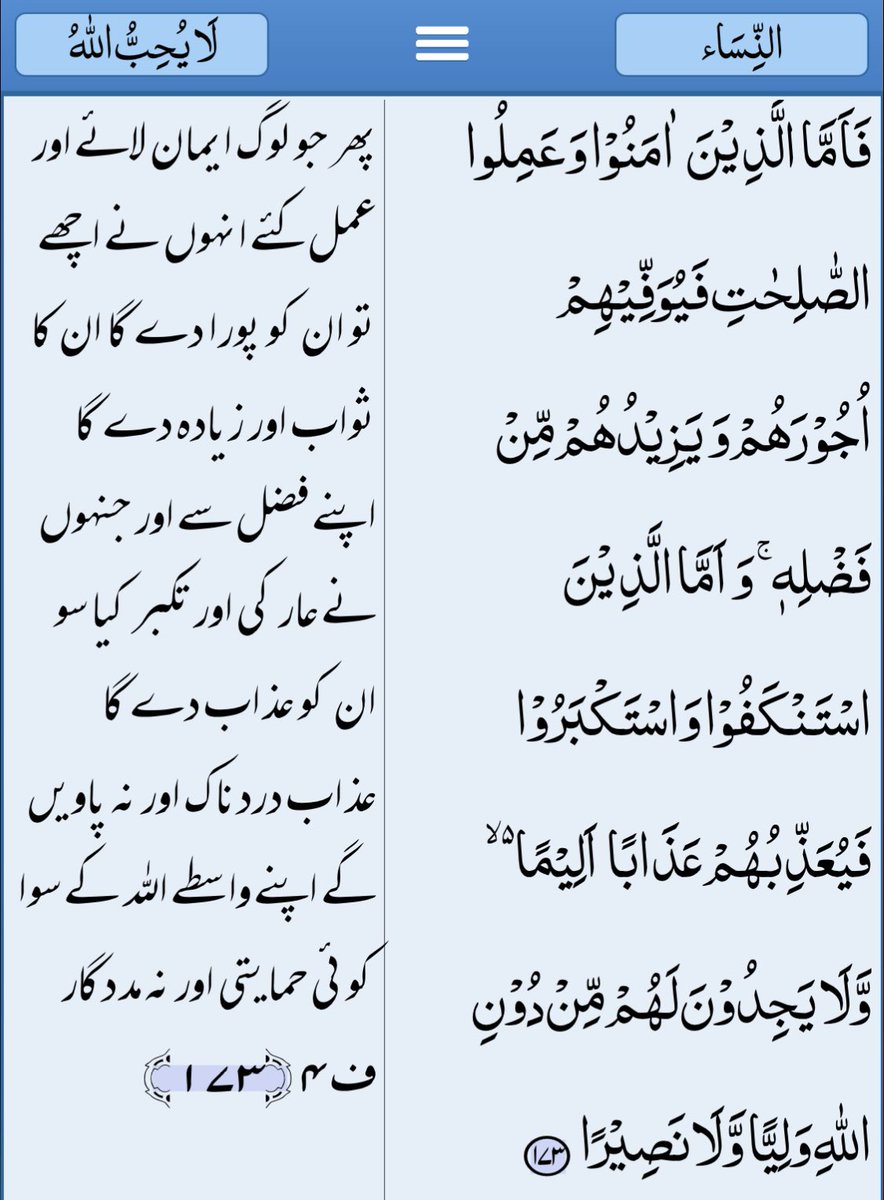 النِّسَاء
لَا يُحِبُّ اللّٰهُ
فَاَمَّا الَّذِيْنَ اٰمَنُوْا وَعَمِلُوا
الصّٰلِحٰتِ فَيُوَفِّيْهِمْ
اُجُوْرَهُمْ وَ يَزِيْدُهُمْ مِّنْ
فَضْلِهٖ ۚ وَ اَمَّا الَّذِيْنَ
اسْتَنْكَفُوْا وَاسْتَكْبَرُوْا
فَيُعَذِّبُهُمْ عَذَابًا اَلِيْمًا ۵ۙ
وَّلَا يَجِدُوْنَ لَهُمْ مِّنْ دُوْنِ
اللّٰهِ وَلِيًّا وَّلَا نَصِيْرًا ۱۷۳
پھر جو لوگ ایمان لائے اور
عمل کئے انہوں نے اچھے
تو ان کو پورا دے گا ان کا
ثواب اور زیادہ دے گا
اپنے فضل سے اور جنہوں
نے عار کی اور تکبر کیا سو
ان کو عذاب دے گا
عذاب دردناک اور نہ پاویں
گے اپنے واسطے اللہ کے سوا
کوئی حمایتی اور نہ مددگار
ف۴ ﴿۱۷۳﴾